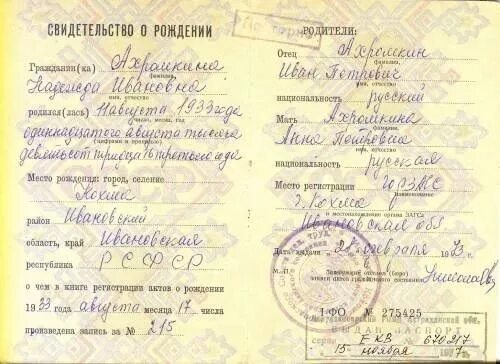 СВИДЕТЕЛЬСТВО О РОЖДЕНИИ
Гражданин(ка) Ахромкина
фамилия,
Надежда Ивановна
имя, отчество
родился(лась) 11 августа 1933 года
число, месяц, год
одиннадцатого августа тысяча
(цифрами и прописью)
девятьсот тридцать третьего года
Место рождения: город, селение
Кохма
район Ивановский
область, край Ивановская
республика РСФСР
о чем в книге регистрации актов о рождении
1933 года августа месяца 17 числа
произведена запись за № 215
Повторно
РОДИТЕЛИ:
Отец Ахромкин
фамилия,
Иван Петрович
имя, отчество
национальность русский
Мать Ахромкина
фамилия,
Анна Петровна
имя, отчество
национальность русская
Место регистрации ГорЗАГС
наименование
г. Кохма
и местонахождение органа ЗАГСа
Ивановская обл
Дата выдачи 28 февраля 1973 г.
М.П. Заведующий отделом (бюро)
записи актов гражданского состояния
I-ФО № 275425
ВЫДАН ПАСПОРТ
серия I-КВ № 670217
15 ноября